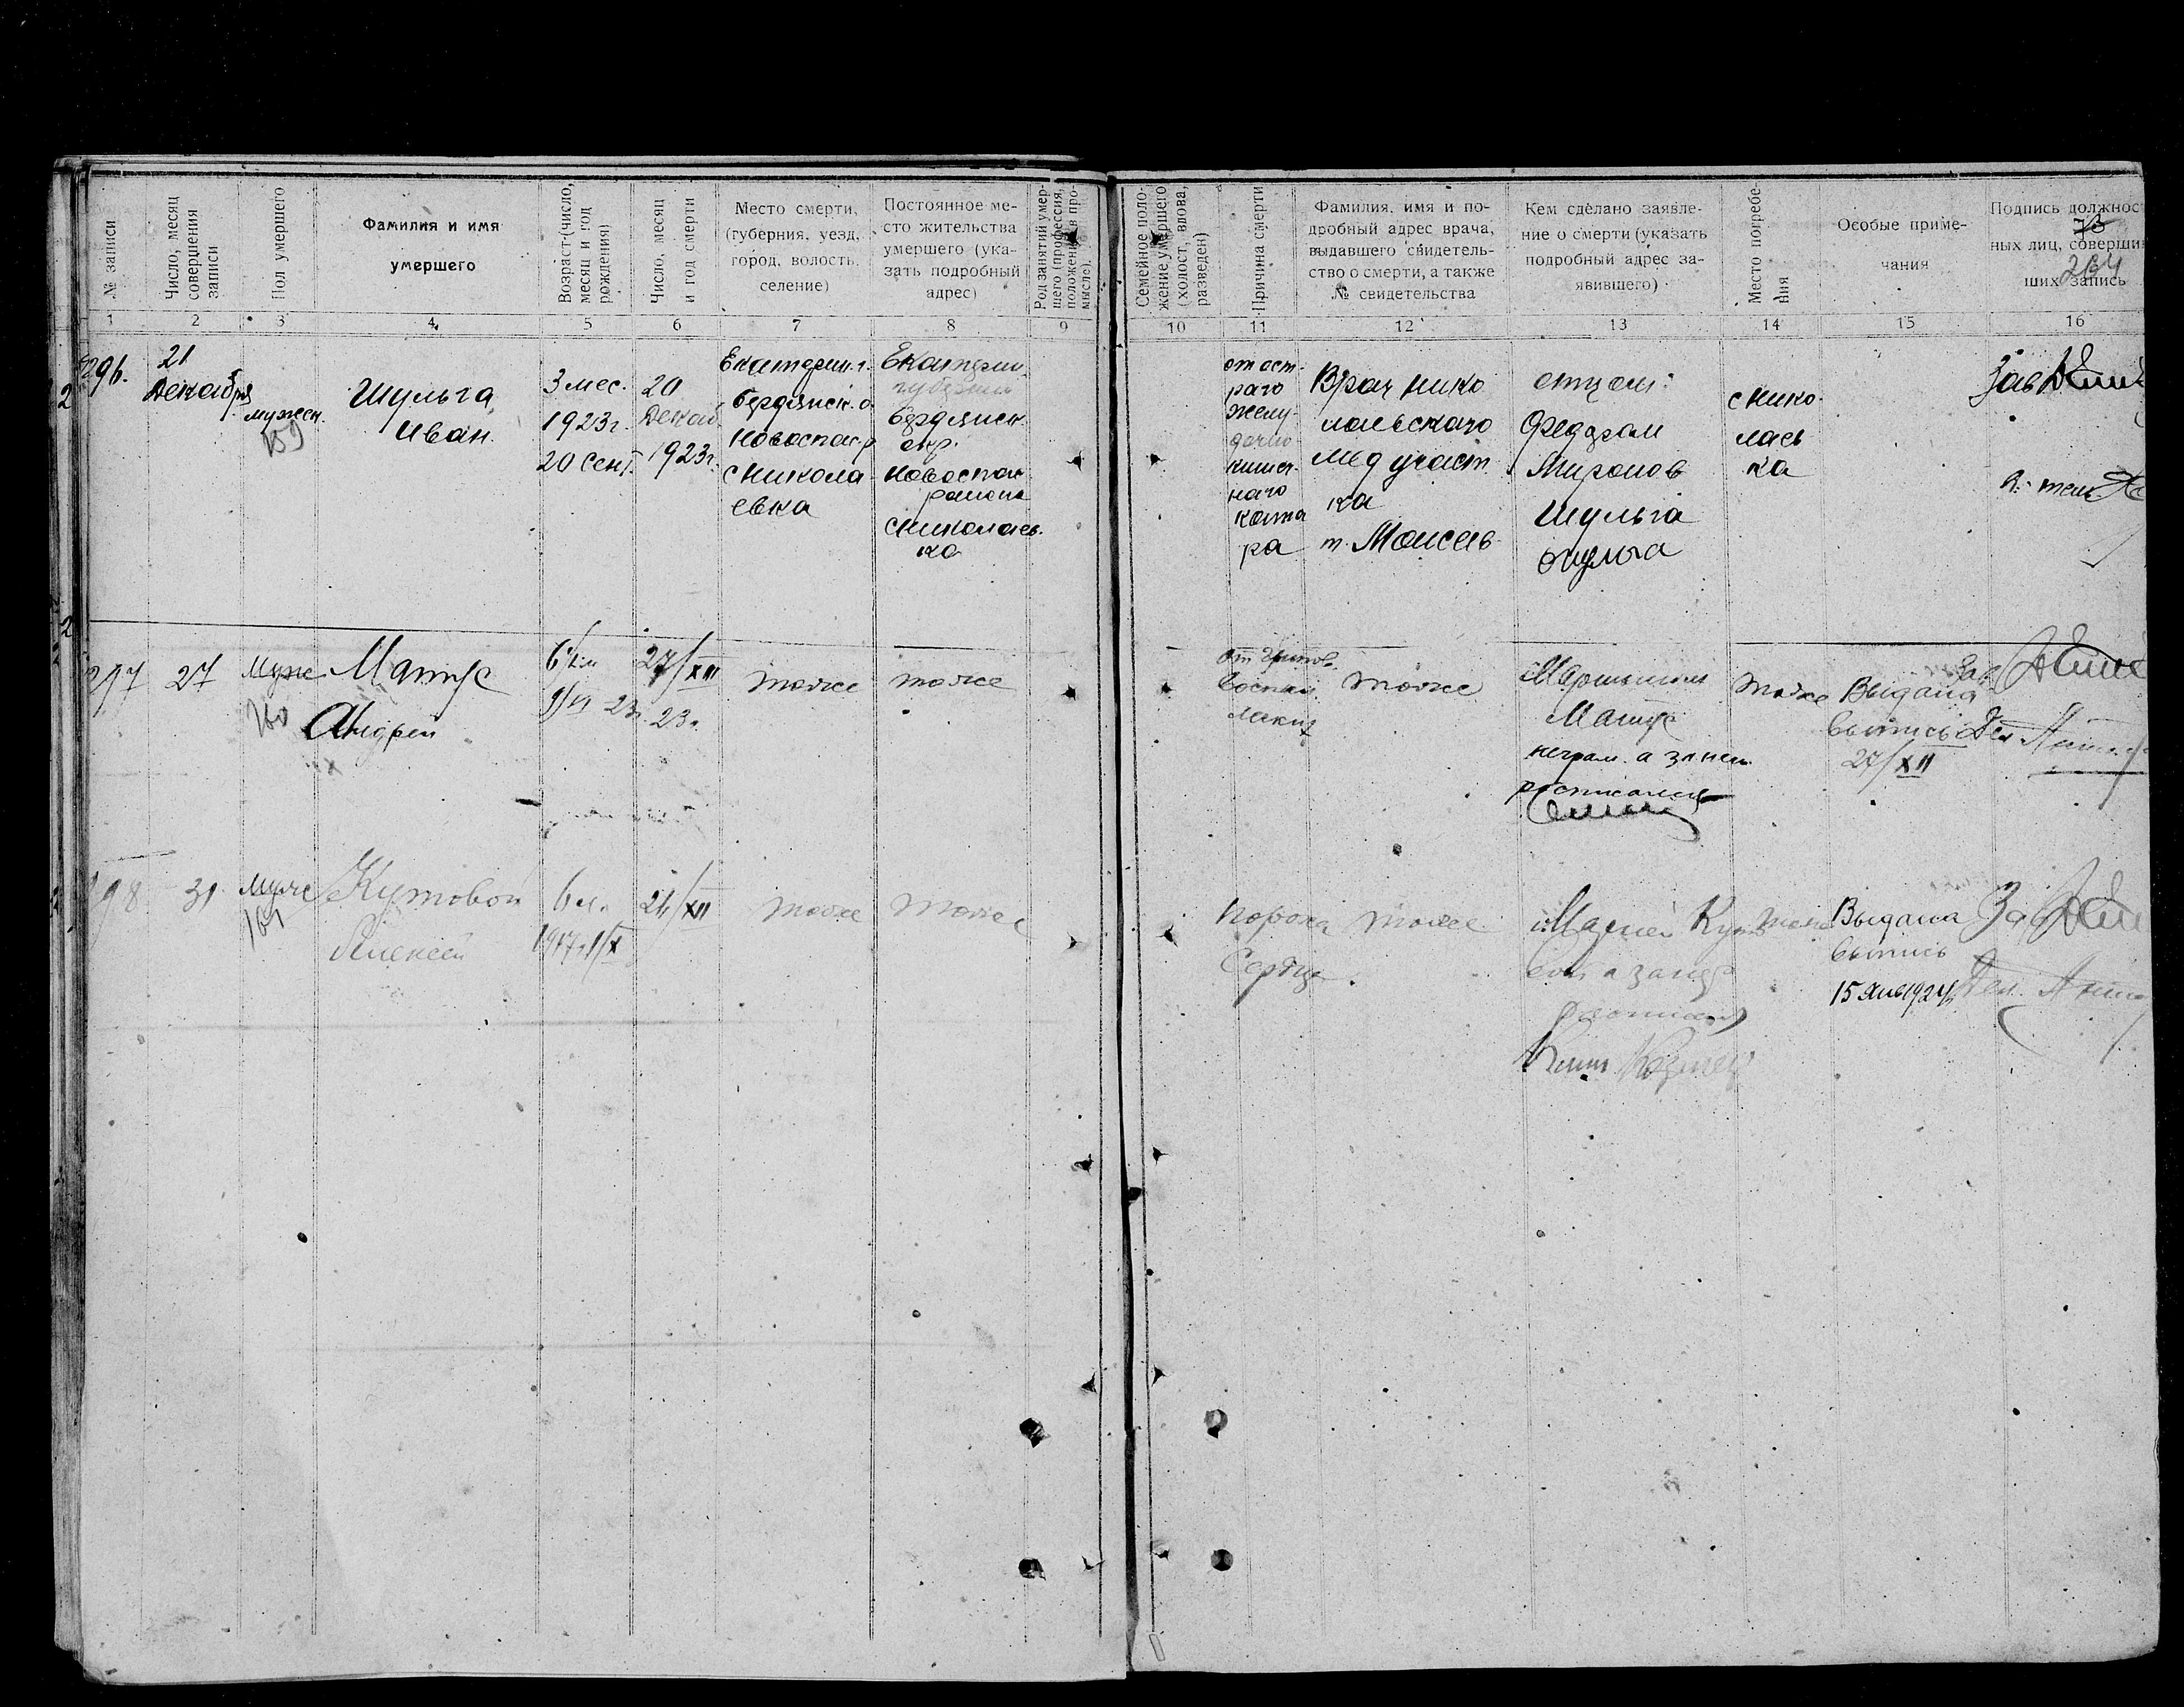 № записи
Число, месяц
совершения
записи
Пол умершего
Фамилия и имя
умершего
Возраст (число,
месяц и год
рождения)
Число, месяц
и год смерти
Место смерти,
(губерния, уезд,
город, волость,
селение)
Постоянное ме-
сто жительства
умершего (ука-
зать подробный
адрес)
Род занятий умер-
шего (профессия,
положение в про-
мысле).
Семейное поло-
жение умершего
(холост, вдова,
разведен)
Причина смерти
Фамилия, имя и по-
дробный адрес врача,
выдавшего свидетель-
ство о смерти, а также
№ свидетельства
Кем сделано заявле-
ние о смерти (указать
подробный адрес за-
явившего)
Место погребе-
ния
Особые приме-
чания
Подпись должнос
ных лиц, соверши
ших запись
1 2 3 4 5 6 7 8 9 10 11 12 13 14 15 16
296.
21
Декабря
мужск.
159
Шульга
Иван
3 мес.
1923г.
20 Сент.
20
Декаб.
1923г.
Екатерин. г.
Бердянск. о.
Новоспас. р
с Никола
евка
Екатерин.
губерния
Бердянск.
окр.
Новоспас.
района
с Николаев.
ка
от ост-
раго
желу-
дачно
кишеч-
наго
ката
ра
Врач Нико
лаевского
мед участ
ка
т. Моисеев
отцом:
Федором
Миронов
Шульга
Шульга
с Нико-
лаев
ка
Зав
297
27
Муж
160
Матус
Андрей
27/XII
23г.
тоже
тоже
тоже
Мартыном
Матус
неграм. а за нег.
росписался
тоже
Выдана
выпись
27/XII
Зав
298
31
Муж
161
Кутовой
Алексей
6 л.
1917г. 1/X
24/XII
тоже
тоже
Порока
Сердца
тоже
Выдана
выпись
15 Янв 1924г.
Зав